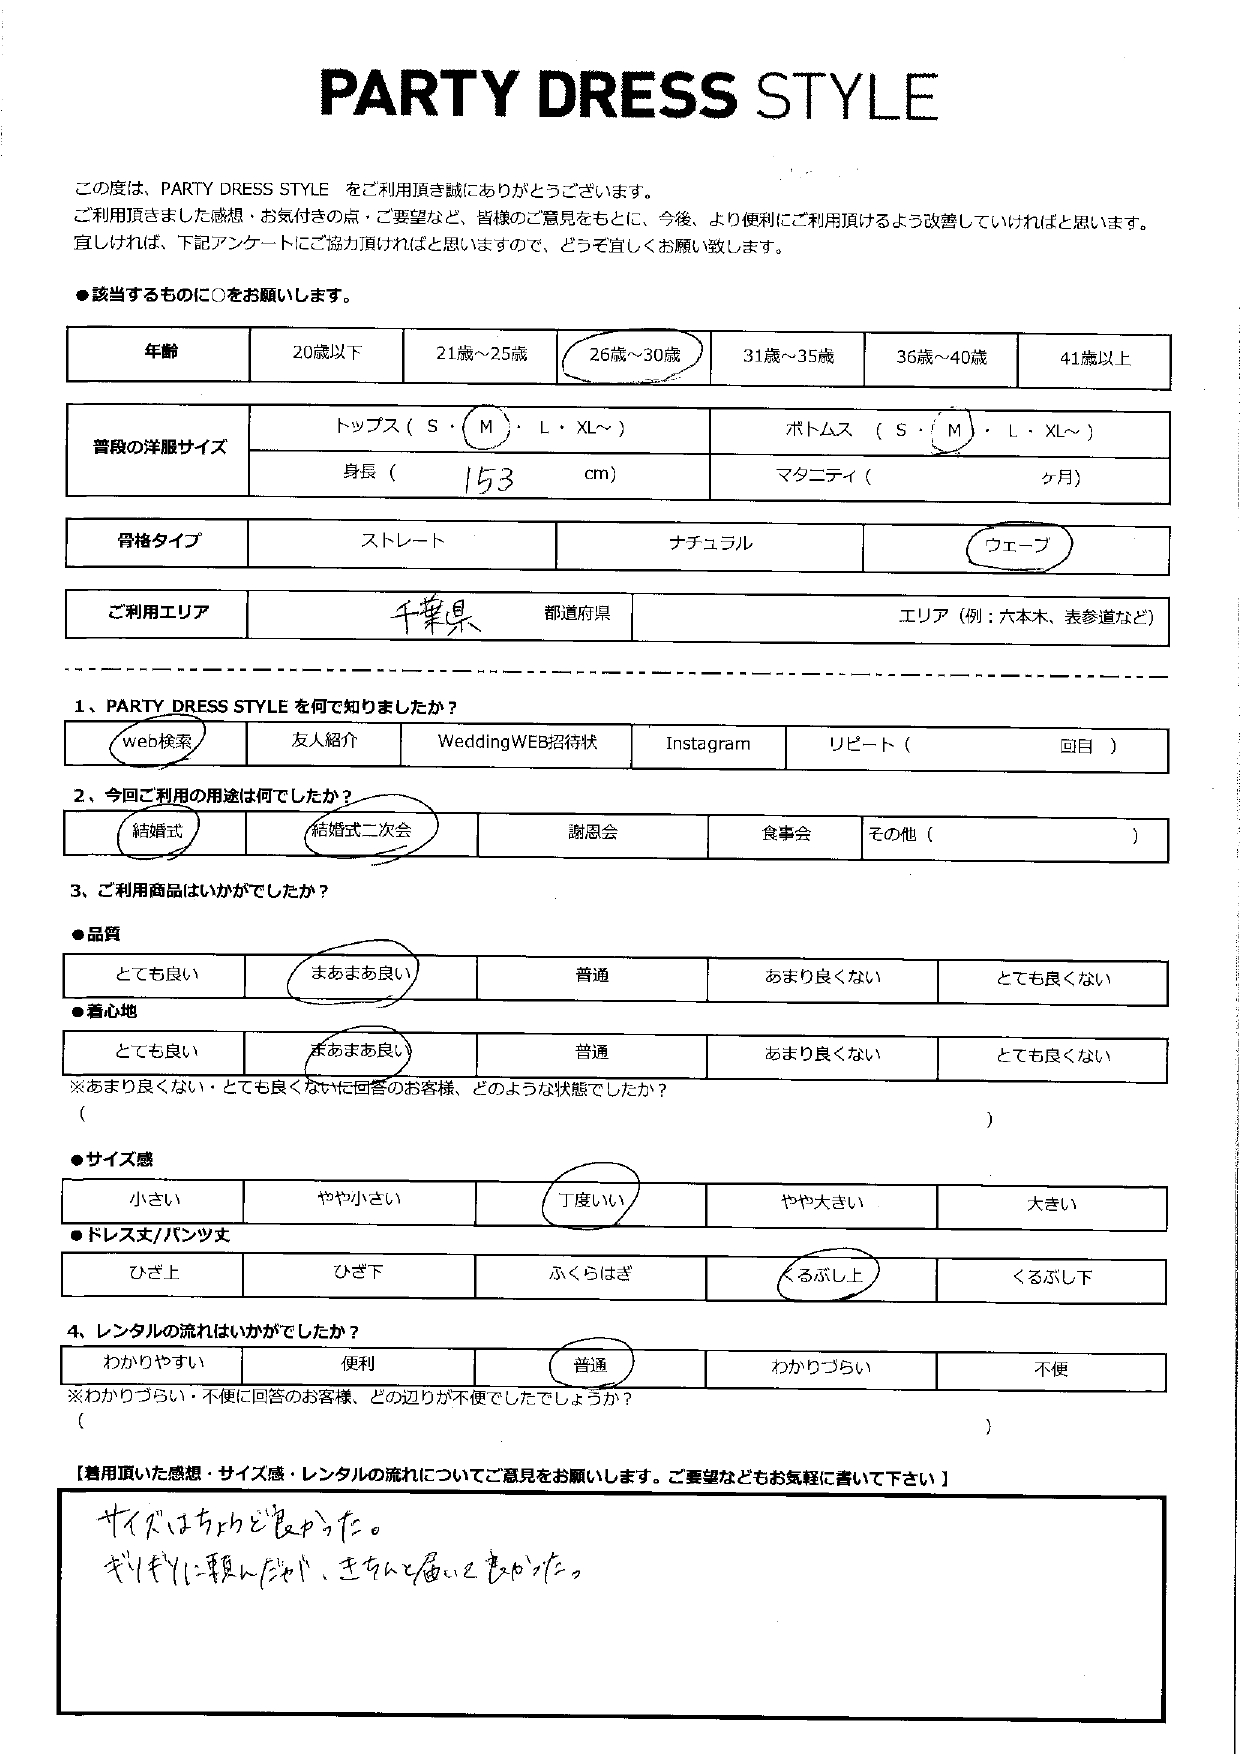 PARTY DRESS STYLE
この度は、PARTY DRESS STYLE をご利用頂き誠にありがとうございます。
ご利用頂きました感想・お気付きの点・ご要望など、皆様のご意見をもとに、今後、より便利にご利用頂けるよう改善していければと思います。
宜しければ、下記アンケートにご協力頂ければと思いますので、どうぞ宜しくお願い致します。
●該当するものに○をお願いします。
年齢 20歳以下 21歳～25歳 26歳～30歳 31歳～35歳 36歳～40歳 41歳以上
普段の洋服サイズ
トップス ( S ・ M ・ L ・ XL～ ) ボトムス ( S ・ M ・ L ・ XL～ )
身長 ( 153 cm) マタニティ ( ヶ月)
骨格タイプ ストレート ナチュラル ウェーブ
ご利用エリア 千葉県 都道府県 エリア (例：六本木、表参道など)
1、PARTY DRESS STYLE を何で知りましたか？
web検索 友人紹介 WeddingWEB招待状 Instagram リピート ( 回目 )
2、今回ご利用の用途は何でしたか？
結婚式 結婚式二次会 謝恩会 食事会 その他 ( )
3、ご利用商品はいかがでしたか？
●品質
とても良い まあまあ良い 普通 あまり良くない とても良くない
●着心地
とても良い まあまあ良い 普通 あまり良くない とても良くない
※あまり良くない・とても良くないに回答のお客様、どのような状態でしたか？
( )
●サイズ感
小さい やや小さい 丁度いい やや大きい 大きい
●ドレス丈/パンツ丈
ひざ上 ひざ下 ふくらはぎ くるぶし上 くるぶし下
4、レンタルの流れはいかがでしたか？
わかりやすい 便利 普通 わかりづらい 不便
※わかりづらい・不便に回答のお客様、どの辺りが不便でしたでしょうか？
( )
【着用頂いた感想・サイズ感・レンタルの流れについてご意見をお願いします。ご要望などもお気軽に書いて下さい】
サイズはちょうど良かった。
ギリギリに頼んだが、きちんと届いて良かった。